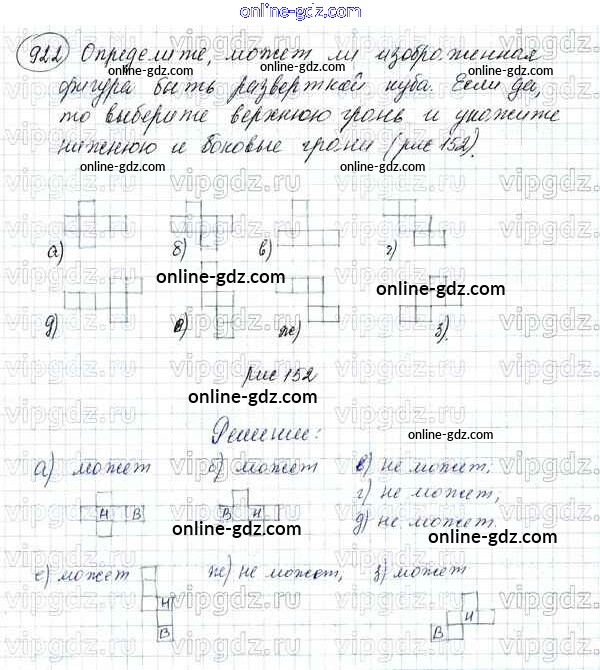 online-gdz.com
922 Определите, может ли изображенная
фигура быть разверткой куба. Если да,
то выберите верхнюю грань и укажите
нижнюю и боковые грани (рис 152).
online-gdz.com
online-gdz.com
online-gdz.com
online-gdz.com
online-gdz.com
vipgdz.ru
vipgdz.ru
vipgdz.ru
online-gdz.com
online-gdz.com
а) б) в) г)
online-gdz.com
online-gdz.com
д) е) ж) з)
рис 152
online-gdz.com
Решение:
online-gdz.com
а) может б) может в) не может;
г) не может,
д) не может.
Н В В Н
online-gdz.com
online-gdz.com
е) может ж) не может, з) может
Н В
В Н
online-gdz.com